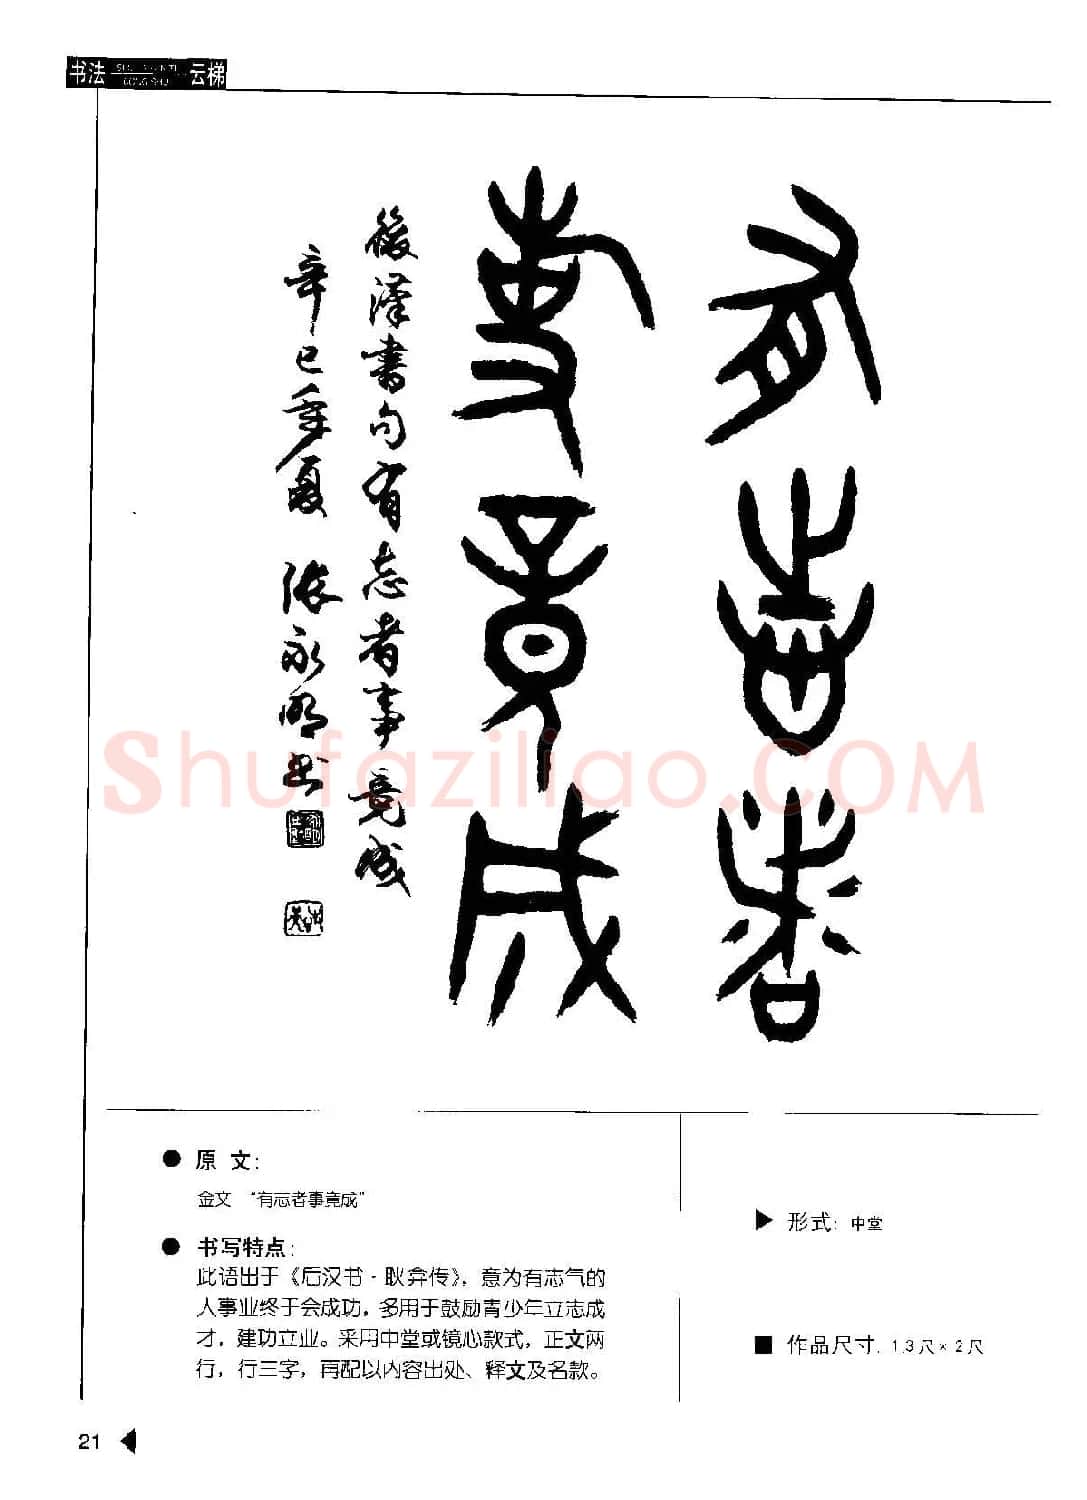 书法 云梯
有志者
事竟成
後漢書句有志者事竟成
辛巳年夏 张永明书
Shufaziliao.COM
● 原 文：
金文 “有志者事竟成”
● 书写特点：
此语出于《后汉书·耿弇传》，意为有志气的
人事业终于会成功，多用于鼓励青少年立志成
才，建功立业。采用中堂或镜心款式，正文两
行，行三字，再配以内容出处、释文及名款。
▶ 形式：中堂
■ 作品尺寸：1.3尺×2尺
21 ◀